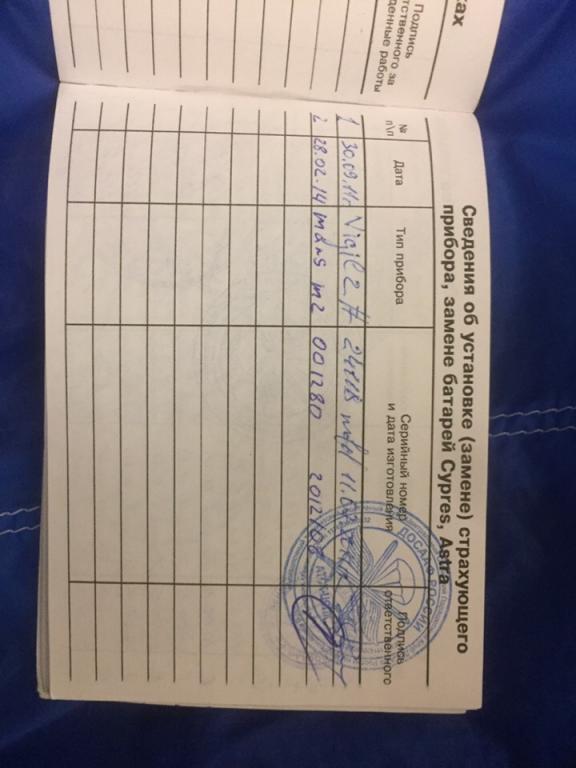 ках
Подпись
тственного за
денные работы
Сведения об установке (замене) страхующего
прибора, замене батарей Cypres, Astra
№
п\п
Дата
Тип прибора
Серийный номер
и дата изготовления
Подпись
ответственного
1 30.09.11г. Vigil 2 #
2 28.02.14 mars m2 001280 2012/08
ДОСААФ РОССИИ